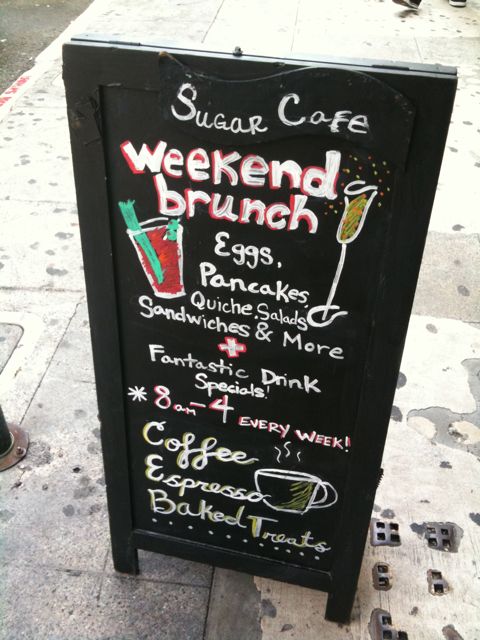 Sugar Cafe
Weekend
brunch
Eggs,
Pancakes,
Quiche, Salads
Sandwiches & More
+
Fantastic Drink
Specials!
* 8am-4 EVERY WEEK!
Coffee
Espresso
Baked Treats